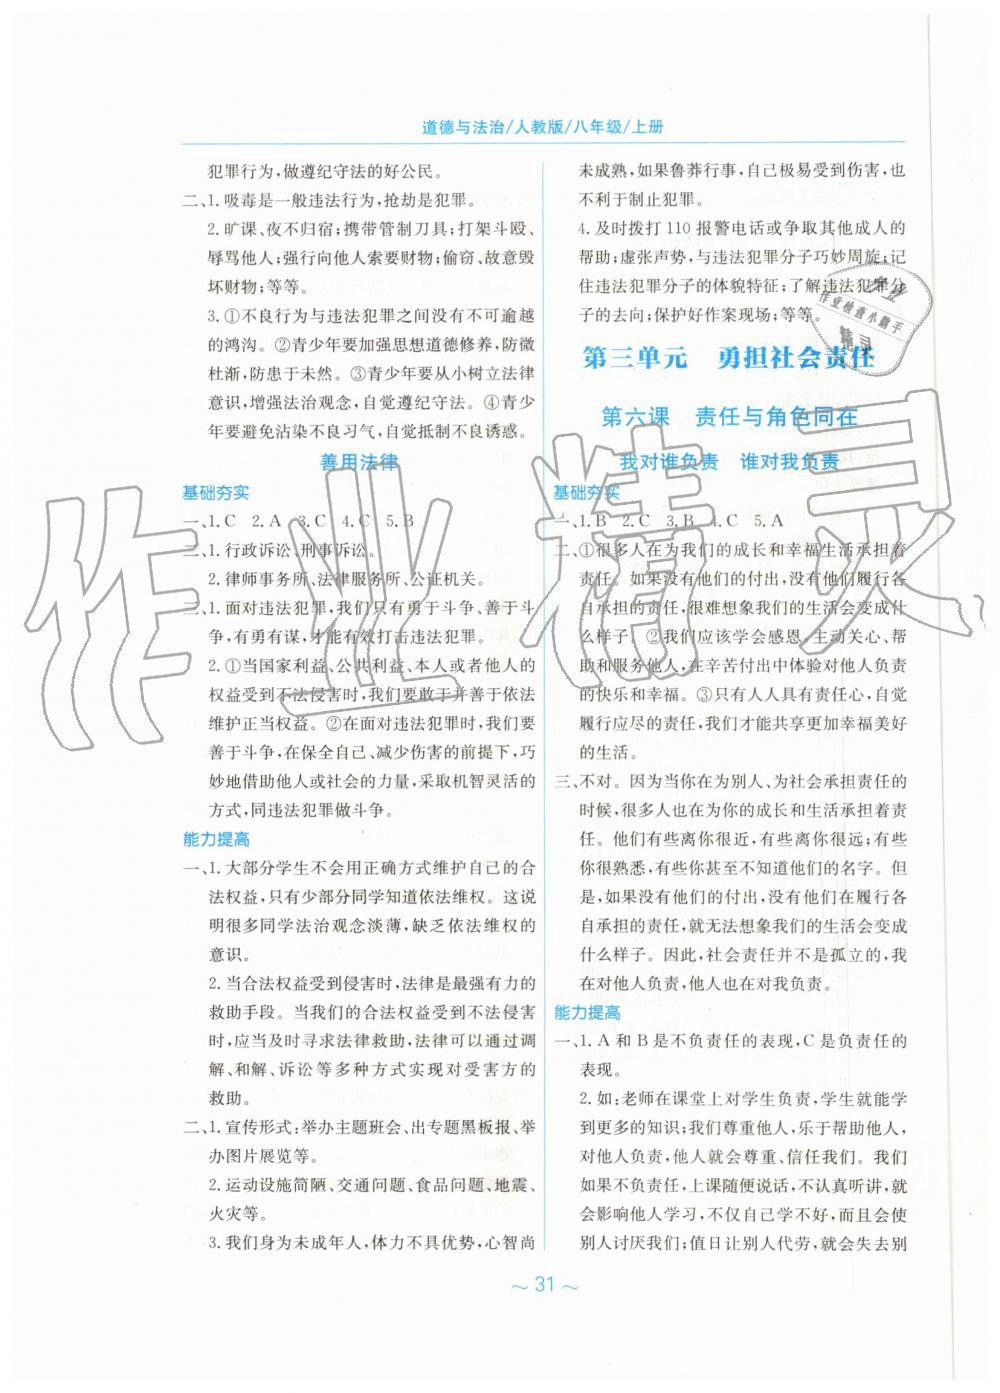 道德与法治/人教版/八年级/上册
犯罪行为,做遵纪守法的好公民。
二、1.吸毒是一般违法行为,抢劫是犯罪。
2.旷课、夜不归宿;携带管制刀具;打架斗殴、
辱骂他人;强行向他人索要财物;偷窃、故意毁
坏财物;等等。
3.①不良行为与违法犯罪之间没有不可逾越
的鸿沟。②青少年要加强思想道德修养,防微
杜渐,防患于未然。③青少年要从小树立法律
意识,增强法治观念,自觉遵纪守法。④青少
年要避免沾染不良习气,自觉抵制不良诱惑。
善用法律
基础夯实
一、1.C 2.A 3.C 4.C 5.B
二、1.行政诉讼、刑事诉讼。
2.律师事务所、法律服务所、公证机关。
三、1.面对违法犯罪,我们只有勇于斗争、善于斗
争,有勇有谋,才能有效打击违法犯罪。
2.①当国家利益、公共利益、本人或者他人的
权益受到不法侵害时,我们要敢于并善于依法
维护正当权益。②在面对违法犯罪时,我们要
善于斗争,在保全自己、减少伤害的前提下,巧
妙地借助他人或社会的力量,采取机智灵活的
方式,同违法犯罪做斗争。
能力提高
一、1.大部分学生不会用正确方式维护自己的合
法权益,只有少部分同学知道依法维权。这说
明很多同学法治观念淡薄,缺乏依法维权的
意识。
2.当合法权益受到侵害时,法律是最强有力的
救助手段。当我们的合法权益受到不法侵害
时,应当及时寻求法律救助,法律可以通过调
解、和解、诉讼等多种方式实现对受害方的
救助。
二、1.宣传形式:举办主题班会、出专题黑板报、举
办图片展览等。
2.运动设施简陋、交通问题、食品问题、地震、
火灾等。
3.我们身为未成年人,体力不具优势,心智尚
未成熟,如果鲁莽行事,自己极易受到伤害,也
不利于制止犯罪。
4.及时拨打110报警电话或争取其他成人的
帮助;虚张声势,与违法犯罪分子巧妙周旋;记
住违法犯罪分子的体貌特征;了解违法犯罪分
子的去向;保护好作案现场;等等。
第三单元 勇担社会责任
第六课 责任与角色同在
我对谁负责 谁对我负责
基础夯实
一、1.B 2.C 3.B 4.C 5.A
二、①很多人在为我们的成长和幸福生活承担着
责任。如果没有他们的付出,没有他们履行各
自承担的责任,很难想象我们的生活会变成什
么样子。②我们应该学会感恩,主动关心、帮
助和服务他人,在辛苦付出中体验对他人负责
的快乐和幸福。③只有人人具有责任心,自觉
履行应尽的责任,我们才能共享更加幸福美好
的生活。
三、不对。因为当你在为别人、为社会承担责任的
时候,很多人也在为你的成长和生活承担着责
任。他们有些离你很近,有些离你很远;有些
你很熟悉,有些你甚至不知道他们的名字。但
是,如果没有他们的付出,没有他们在履行各
自承担的责任,就无法想象我们的生活会变成
什么样子。因此,社会责任并不是孤立的,我
在对他人负责,他人也在对我负责。
能力提高
一、1.A和B是不负责任的表现,C是负责任的
表现。
2.如:老师在课堂上对学生负责,学生就能学
到更多的知识;我们尊重他人,乐于帮助他人,
对他人负责,他人就会尊重、信任我们。我们
如果不负责任,上课随便说话,不认真听讲,就
会影响他人学习,不仅自己学不好,而且会使
别人讨厌我们;值日让别人代劳,就会失去别
~31~
作业检查小助手
精灵
作业精灵